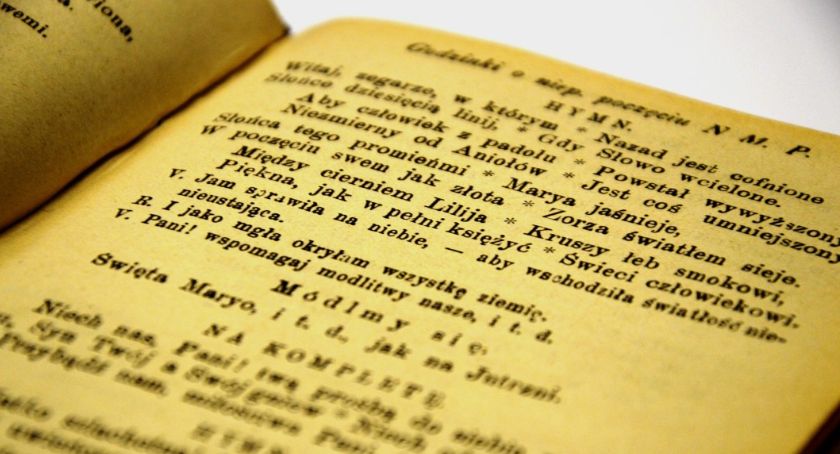 wemi.
Godzinki o niep. poczęciu N M. P.
HYMN.
Witaj, zegarze, w którym * Nazad jest cofnione
Słońce dziesięcią linij, * Gdy Słowo wcielone.
Aby człowiek z padołu * Powstał wywyższony
Niezmierny od Aniołów * Jest coś umniejszony
Słońca tego promieńmi * Marya jaśnieje,
W poczęciu swem jak złota * Zorza światłem sieje.
Między cierniem Lilija * Kruszy łeb smokowi,
Piękna, jak w pełni księżyć * Świeci człowiekowi.
V. Jam sprawiła na niebie, — aby wschodziła światłość nie-
nieustająca.
R. I jako mgła okryłam wszystkę ziemię.
V. Pani! wspomagaj modlitwy nasze, i t. d.
Módlmy się.
Święta Maryo, i t. d., jak na Jutrzni.
NA KOMPLETĘ
Niech nas, Pani! twą prośbą do siebie
Syn Twój a Swój gniew * Niech
Przybądź nam, miłościwa Pani